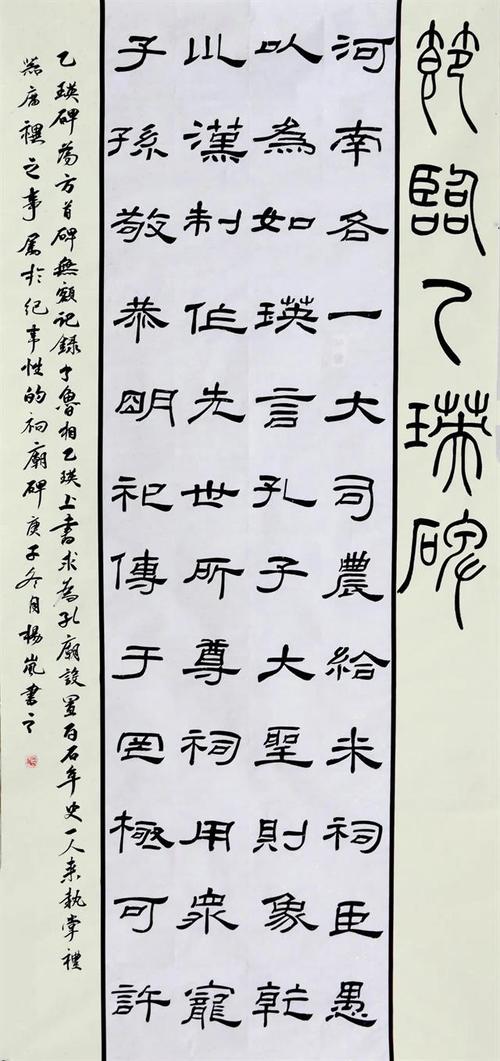 節臨乙瑛碑
河南各一大司農給米祠臣愚
以為如瑛言孔子大聖則象乾
川漢制作先世所尊祠用眾寵
子孫敬恭明祀傳于罔極可許
乙瑛碑為方首碑無額記錄了魯相乙瑛上書求為孔廟設置百石卒史一人來執掌禮
器庙禮之事屬於紀事性的祠廟碑庚子冬月楊嵐書之